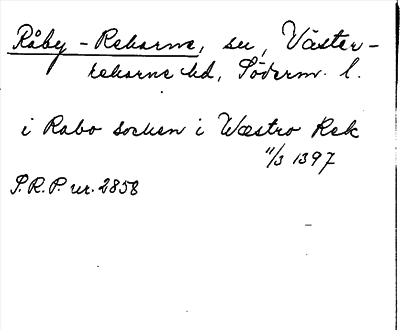 Råby-Rekarne, sn, Väster-
rekarne hd, Söderm. l.
i Rabo socken i Wæstro Rek
11/3 1397
S.R.P. nr. 2858